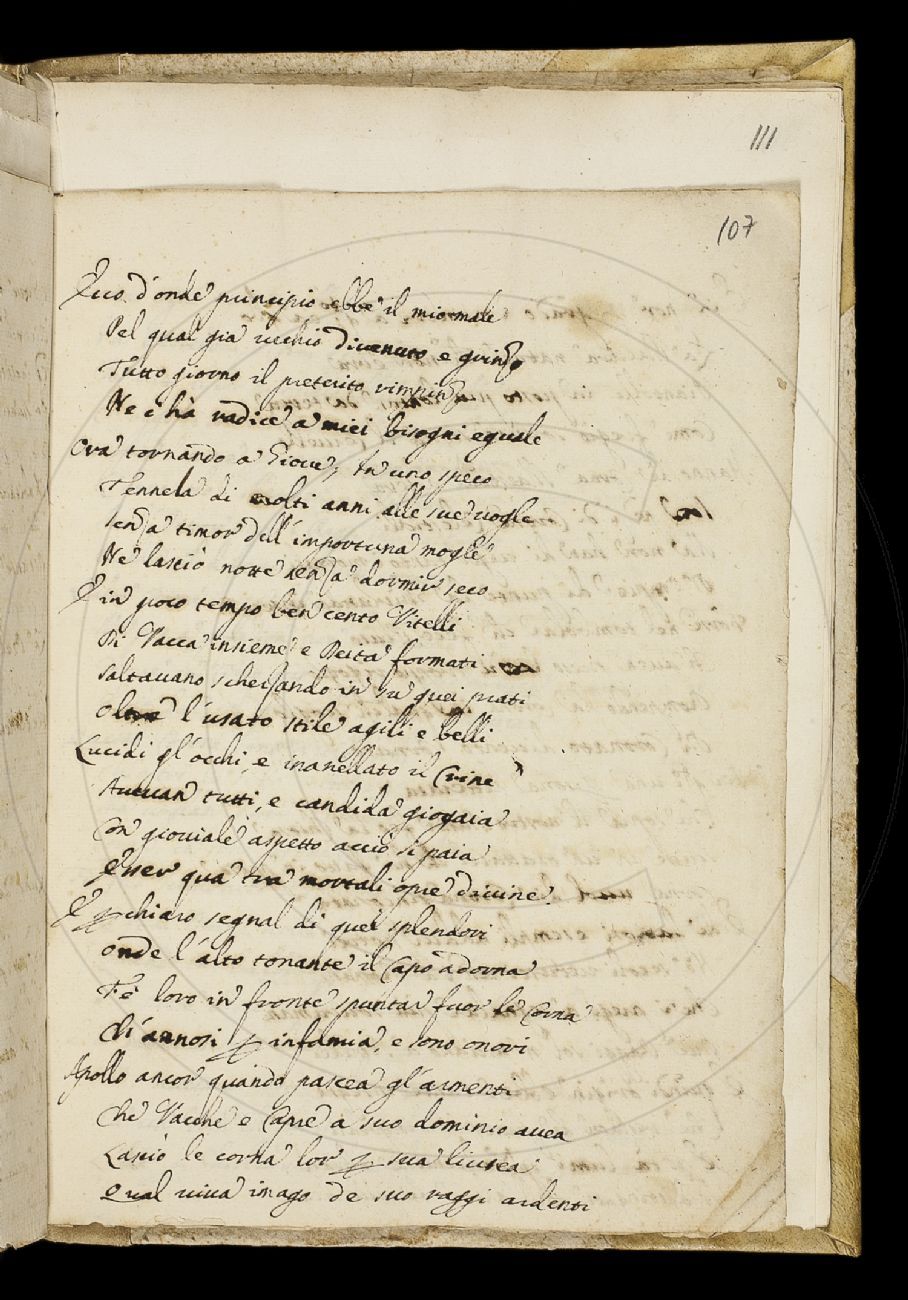 111
107
Ecco d'onde principio ebbe il mio male
Pel qual già vechio divenuto e grinzo
Tutto giorno il preterito rimpinzo
Ne c'hà radice a miei bisogni eguale
Ora tornando a Giove, In uno speco
Tennela di molti anni alle sue voglie
senza timor dell'importuna moglie
Ne lasciò notte senza dormir seco
E in poco tempo ben cento Vitelli
Di Vacca insieme e Deita formati
saltavano scherzando in su quei prati
oltre l'usato stile agili e belli
Lucidi gl'occhi, e inanellato il Crine
Aveuan tutti, e candida giogaia
Con gioviale aspetto acciò si paia
Esser qua tra mortali opre divine.
E ꝑ chiaro segnal di quei splendori
onde l'alto tonante il Capo adorna
Fè loro in fronte spuntar fuor le Corna
Ch'annosi ꝑ infamia, e sono onori
Apollo ancor quando pascea gl'armenti
Che Vacche e Capre a suo dominio avea
Lasciò le corna lor ꝑ sua livrea
Qual viva imago de suo raggi ardenti